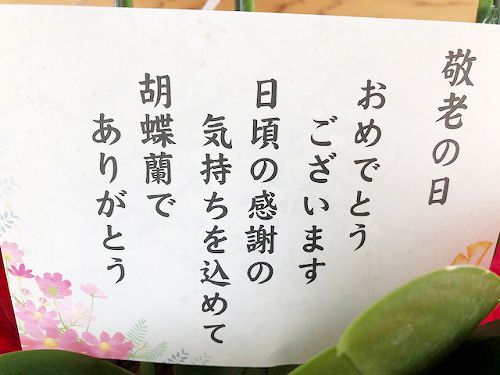 敬老の日
おめでとう
ございます
日頃の感謝の
気持ちを込めて
胡蝶蘭で
ありがとう